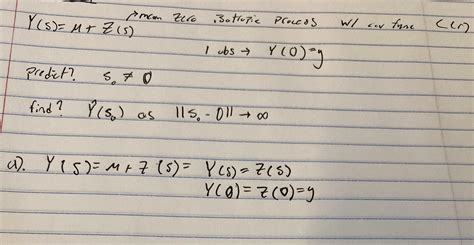 Y(s) = μ + Z(s) → mean zero isotropic process w/ cov func C(r)
1 obs → Y(0)=y
predict? s₀ ≠ 0
find? Ŷ(s₀) as ||s₀ - 0|| → ∞
a). Y(s) = μ + Z(s) = Y(s) = Z(s)
Y(0) = Z(0) = y